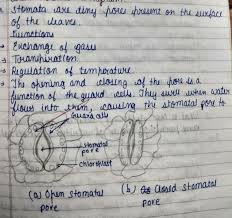 Stomata are tiny pores present on the surface
of the leaves.
Functions
→ Exchange of gases
→ Transpiration
→ Regulation of temperature
→ The opening and closing of the pore is a
function of the guard cells. They swell when water
flows into them, causing the stomatal pore to
Guard cells
Stomatal
pore
Chloroplast
(a) Open stomatal
pore
(b) Closed stomatal
pore